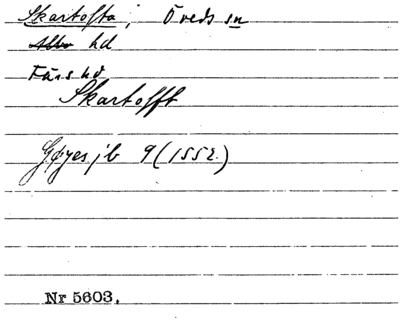 Skartofta, Öveds sn
Albo hd
Färs hd
Skartofft
Gøyes jb 9 (1552.)
Nr 5603.